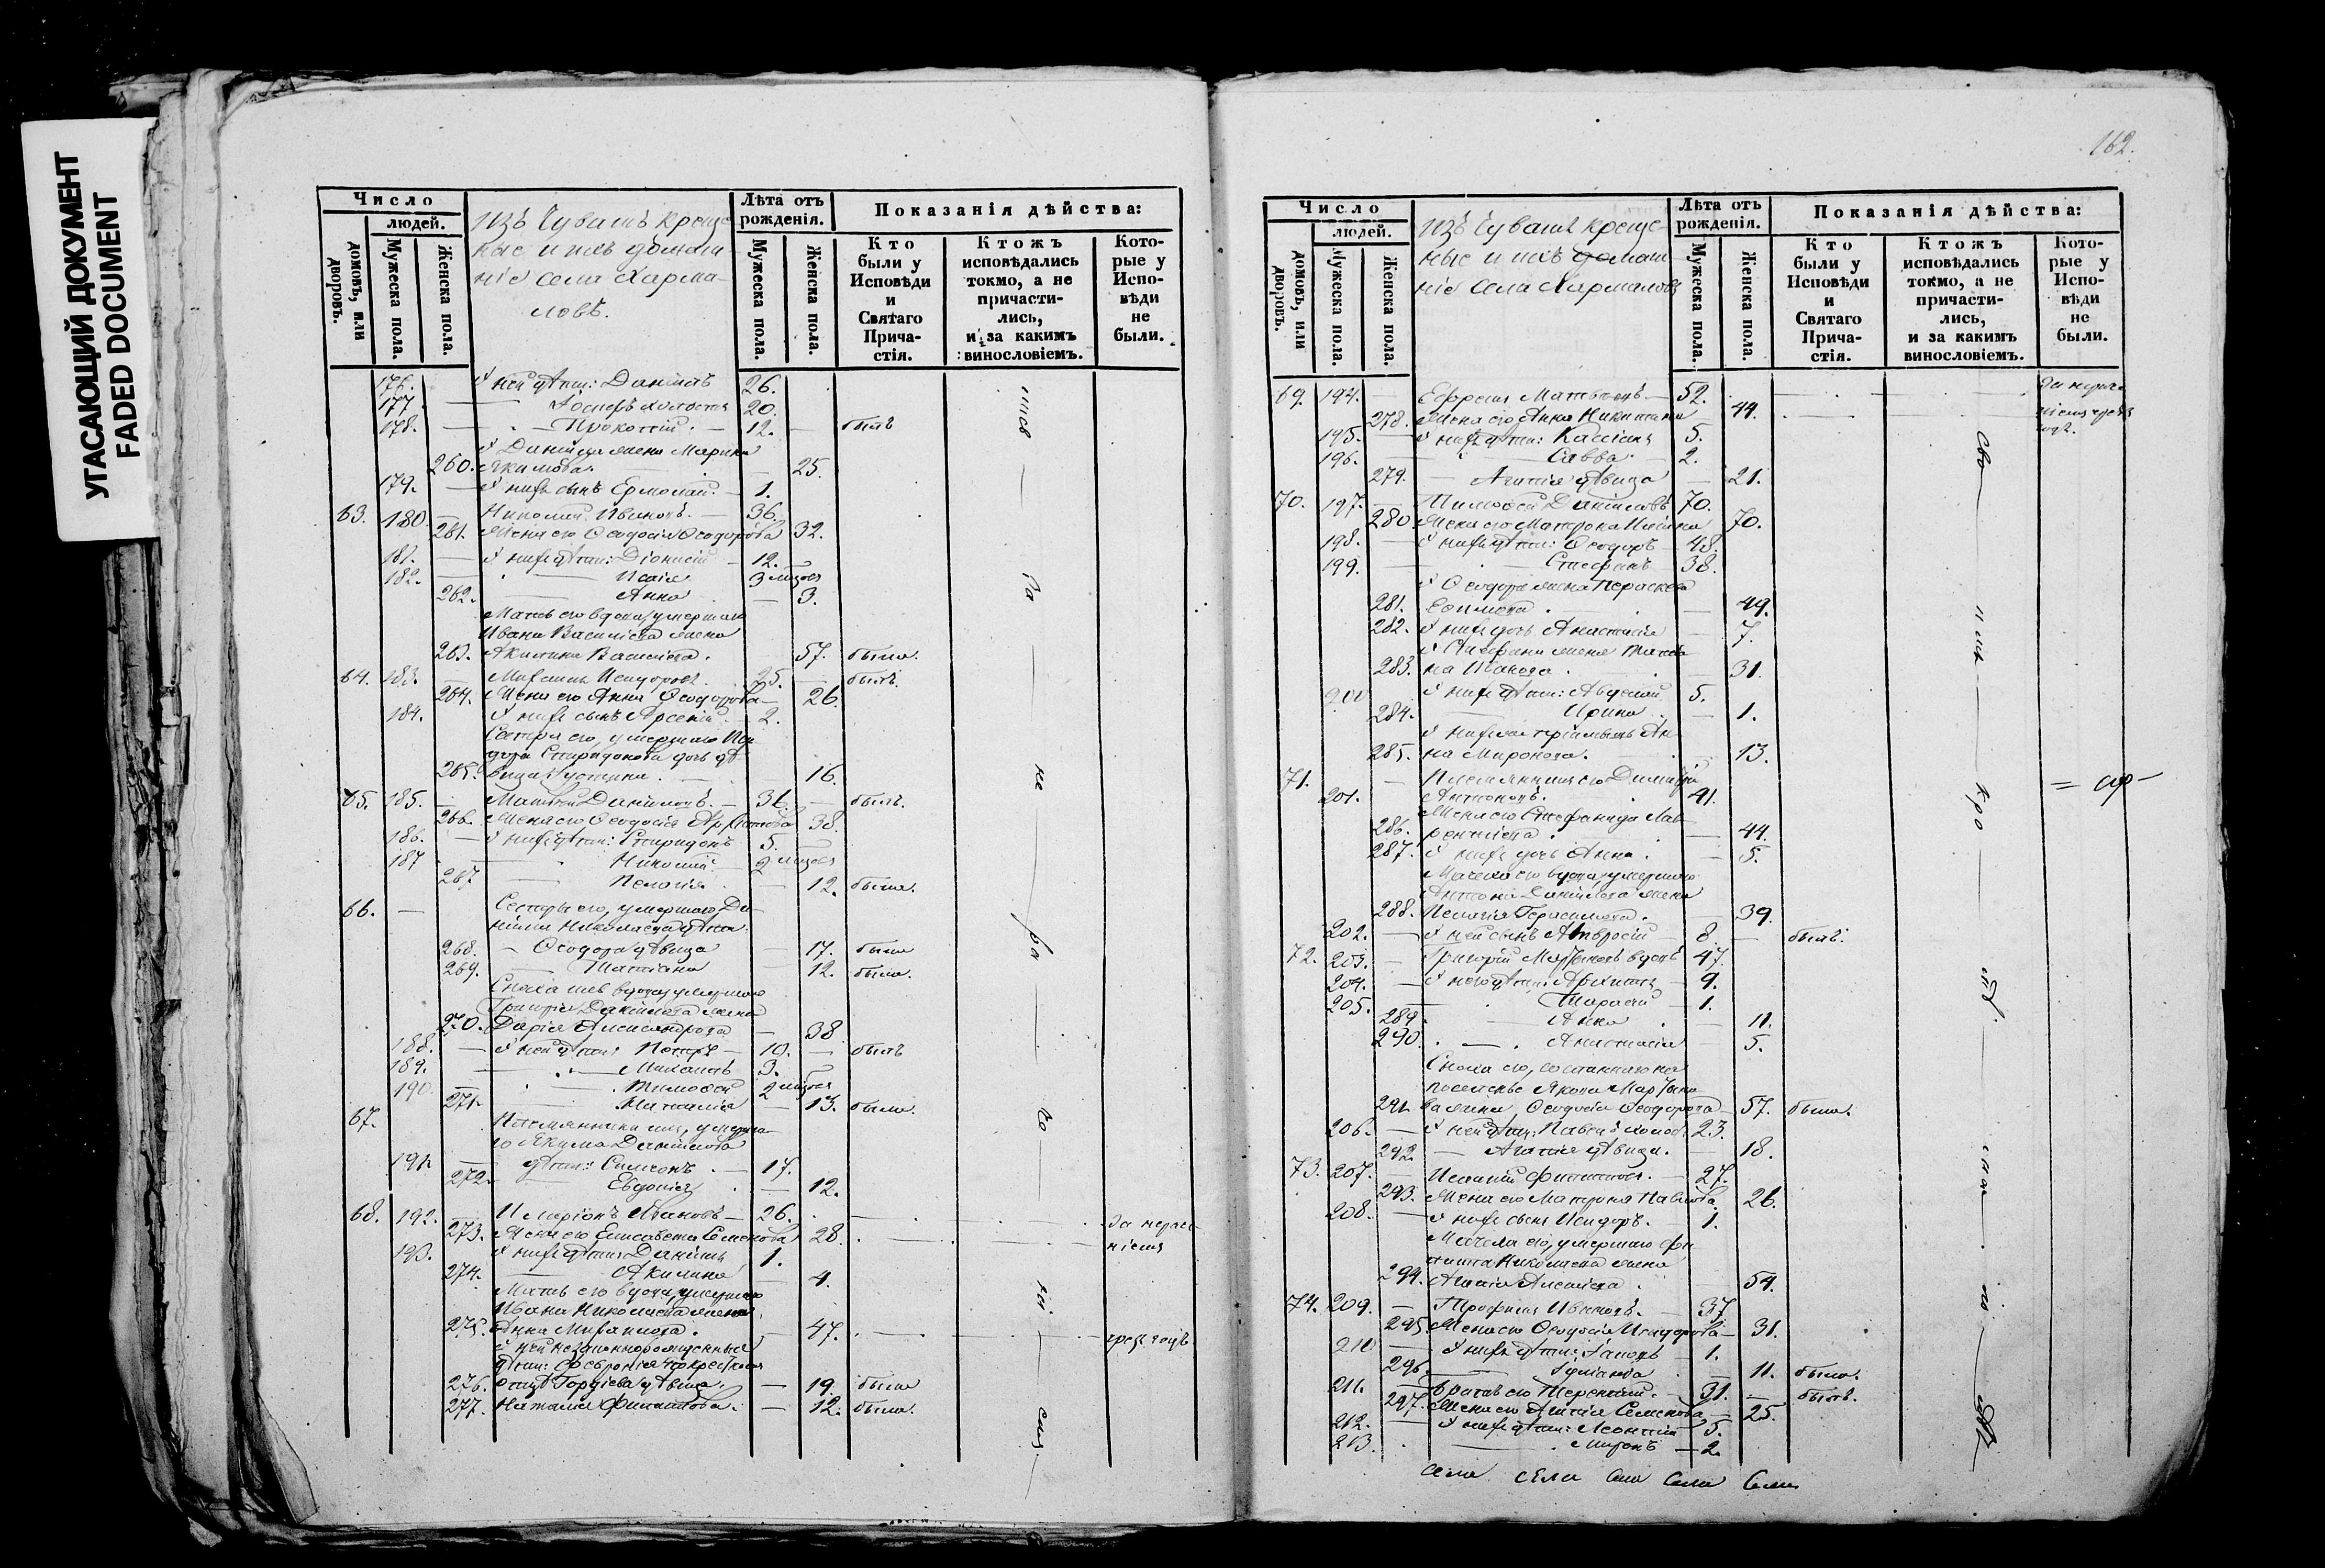 УГАСАЮЩИЙ ДОКУМЕНТ
FADED DOCUMENT
Число
людей.
домовъ, или дворовъ.
Мужеска пола.
Женска пола.
Изъ Чувашъ креще-
ные и ихъ домаш-
ніе села
Лѣта отъ рожденія.
Мужеска пола.
Женска пола.
Показанія дѣйства:
Кто были у Исповѣди и Святаго Прича-стія.
Ктожъ исповѣдались токмо, а не причасти-лись, и за какимъ винословіемъ.
Кото-рые у Испо-вѣди не были.
176. У ней дѣти: Даніилъ 26.
177. Іосифъ холостъ 20.
178. Прокопій 12. былъ
У Даніила жена Марина
260. Якимова 25.
179. У нихъ сынъ Ермолай 1.
63. 180. Николай Ивановъ 36.
261. Жена его Ѳеодосія Ѳеодорова 32.
181. У нихъ дѣти: Діонисій 12.
182. Исаія 3 мѣсяц
262. Анна 3.
Мать его вдова, умершаго
Ивана Василіева жена
263. Акилина Василіева 57. была.
64. 183. Исидоровъ 25. былъ.
264. Жена его Анна Ѳеодорова 26.
184. У нихъ сынъ Арсеній 2.
Сестра его, умершаго Иси-
дора Спиридонова дочь дѣ-
265. вица Устинья 16.
65. 185. Матвей Даниловъ 36. былъ.
266. Жена его Ѳеодосія 38.
186. У нихъ дѣти: Спиридонъ 5.
187 Николай 2 мѣсяц
267 Пелагія 12. была.
66. Сестры его, умершаго Да-
ніила Николаева дѣти
268. Ѳеодора дѣвица 17. была
269. Татіана 12. была.
Сноха ихъ вдова, умершаго
Григорія Данилова жена
270. Дарія Александрова 38
188. У ней дѣти: Петръ 10. былъ
189. Михаилъ 3.
190. Тимоѳей 2 мѣсяц
271. Наталія 13. была.
67. Племянники ихъ, умерша-
го Якима Данилова
191. дѣти: Симеонъ 17.
272. Евдокія 12.
68. 192. Иларіонъ Ивановъ 26.
273. Жена его Елисавета Семенова 28.
193. У нихъ дѣти: Даніилъ 1.
274. Акилина 4.
Мать его вдова, умершаго
Ивана Николаева жена
275. Анна Михаилова 47.
У ней незаконнорожденныя
дѣти: Февронія по крестному
276. отцу Гордѣева дѣвица 19. была
277. Наталія Филиппова 12. была.
162.
Число
людей.
домовъ, или дворовъ.
Мужеска пола.
Женска пола.
Изъ Чувашъ креще-
ные и ихъ домаш-
ніе села
Лѣта отъ рожденія.
Мужеска пола.
Женска пола.
Показанія дѣйства:
Кто были у Исповѣди и Святаго Прича-стія.
Ктожъ исповѣдались токмо, а не причасти-лись, и за какимъ винословіемъ.
Кото-рые у Испо-вѣди не были.
69. 194. Ефремъ Матвеевъ 52.
278. Жена его Анна Никитина 44.
195. У нихъ дѣти: Кассіанъ 5.
196. Савва 2.
279. Агапія дѣвица 21.
70. 197. Тимоѳей Даниловъ 70.
280. Жена его Матрона Ильина 70.
198. У нихъ дѣти: Ѳеодоръ 48.
199. Стефанъ 38.
У Ѳеодора жена Параскева
281. Ефимова 49.
282. У нихъ дочь Анастасія 7.
У Стефана жена Татіа-
283. на Иванова 31.
200 У нихъ дѣти: Авдей 5.
284. Ирина 1.
У нихъ же пріемышъ Ан-
285. на Миронова 13.
71. Племянникъ его Димитрій
201. Антоновъ 41.
Жена его Стефанида Лав-
286. рентіева 44.
287. У нихъ дочь Анна 5.
Мачеха его вдова, умершаго
Антона Данилова жена
288. Пелагія Герасимова 39.
202. У ней сынъ Амвросій 8 былъ.
72. 203. Григорій вдовъ 47.
204. У него дѣти: Архипъ 9.
205. Тарасій 1.
289. Анна 11.
290. Анастасія 5.
Сноха его, сосланнаго на
поселенье Якова
291. жена Ѳеодосія Ѳеодорова 57. была.
206. У ней дѣти: Павелъ холостъ 23.
292. Агапія дѣвица 18.
73. 207. Игнатій Филипповъ 27.
293. Жена его Матрона Павлова 26.
208. У нихъ сынъ Исидоръ 1.
Мачеха его, умершаго Фи-
липпа Николаева жена
294. Агапія Алексѣева 54.
74. 209. Трофимъ Ивановъ 37
295. Жена его Ѳеодосія Исидорова 31.
210 У нихъ дѣти: 1.
296. Іуліанія 11. была.
211. Братъ его Терентій 31. былъ.
297. Жена его Агапія Семенова 25.
212. У нихъ дѣти: Леонтій 5.
213. Миронъ 2.
села села села села села